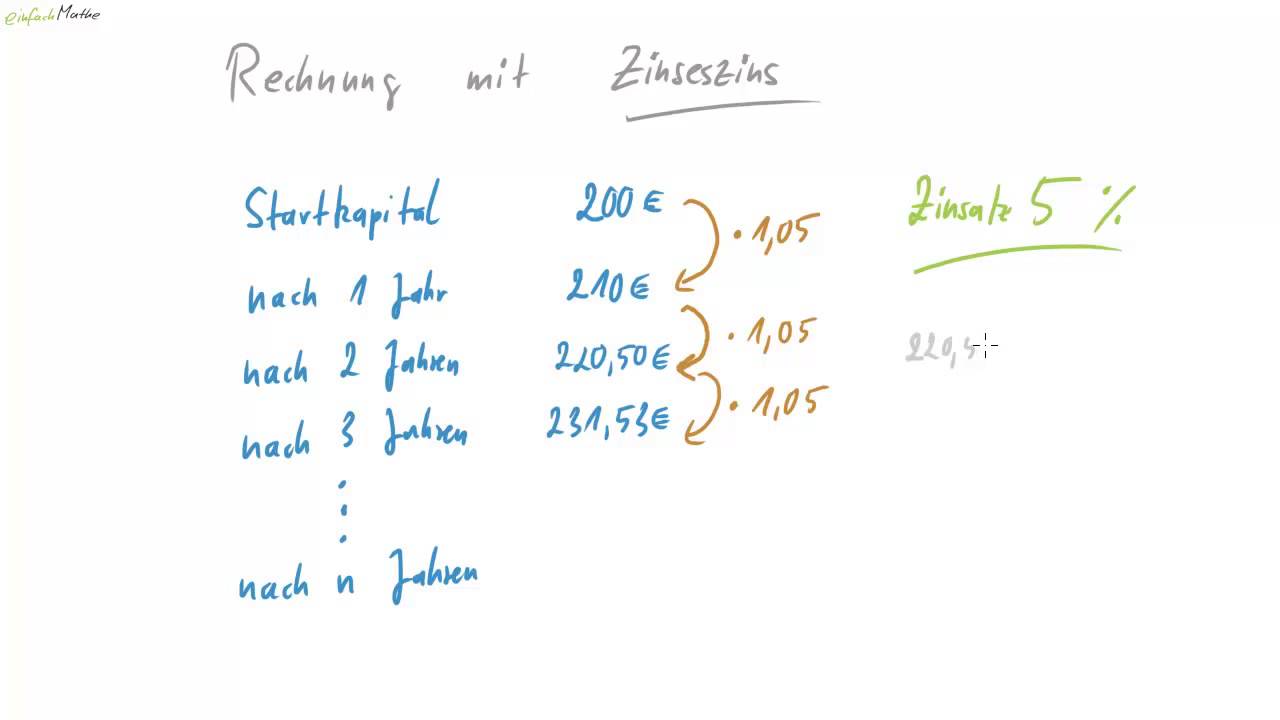 einfach Mathe
Rechnung mit Zinseszins
Startkapital 200 € · 1,05 Zinsatz 5 %
nach 1 Jahr 210 € · 1,05
nach 2 Jahren 220,50 € · 1,05 220,5
nach 3 Jahren 231,53 €
⋮
nach n Jahren